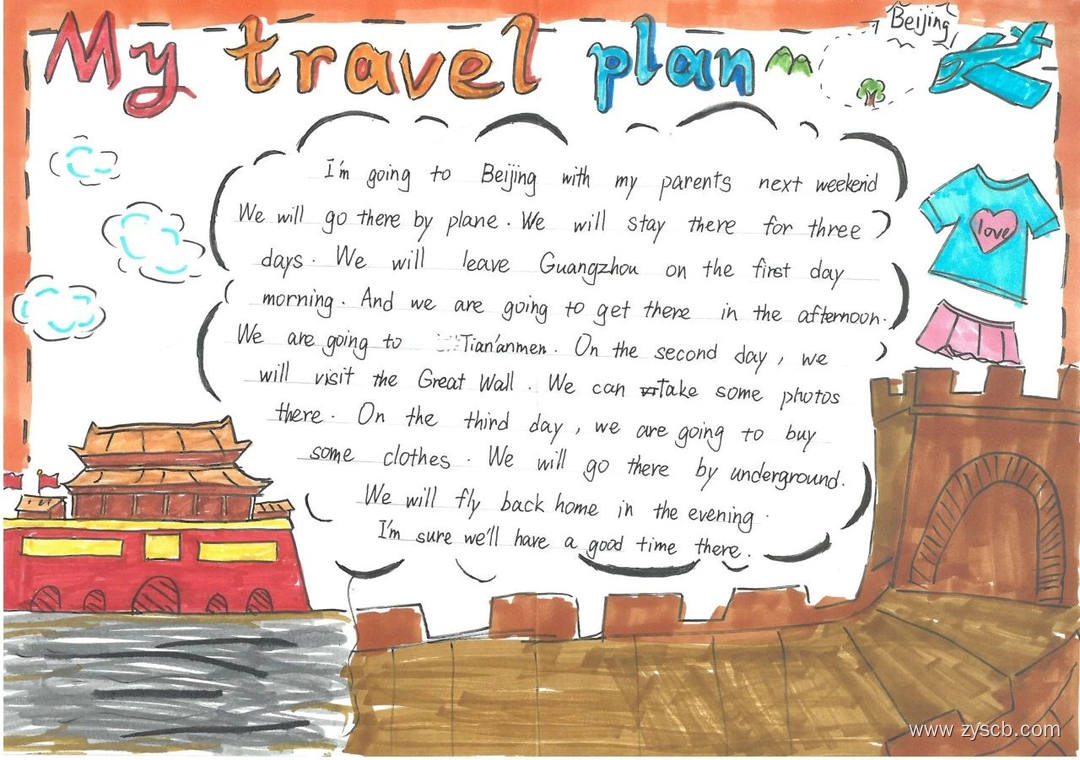 My travel plan
Beijing
I'm going to Beijing with my parents next weekend
We will go there by plane. We will stay there for three
days. We will leave Guangzhou on the first day
morning. And we are going to get there in the afternoon.
We are going to Tian'anmen. On the second day, we
will visit the Great Wall. We can take some photos
there. On the third day, we are going to buy
some clothes. We will go there by underground.
We will fly back home in the evening.
I'm sure we'll have a good time there.
love
www.zyscb.com